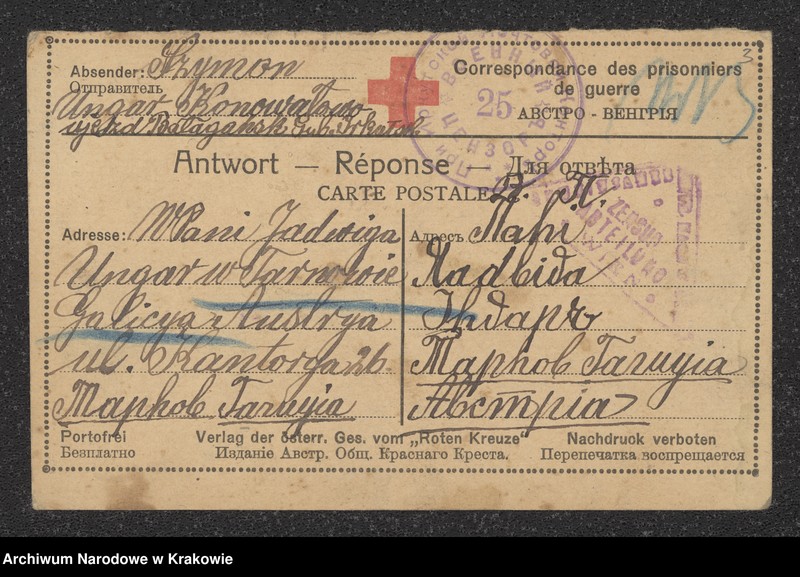 Absender: Szymon
Отправитель
Ungar Konowałowo
ujezd Bałagańsk Gub. Irkutsk
Correspondance des prisonniers
de guerre
АВСТРО - ВЕНГРІЯ
3
25
Antwort — Réponse — Для отвѣта
CARTE POSTALE
Adresse: WPani Jadwiga
Ungar w Tarnowie
Galicya Austrya
ul. Kantorya 26
Тарнов Галиція
Адресъ Пани
Ядвіга
Унгаръ
Тарнов Галиція
Австрія
ZENSUR
ABTEILUNG
Portofrei Verlag der österr. Ges. vom „Roten Kreuze" Nachdruck verboten
Безплатно Изданіе Австр. Общ. Краснаго Креста. Перепечатка воспрещается
Archiwum Narodowe w Krakowie